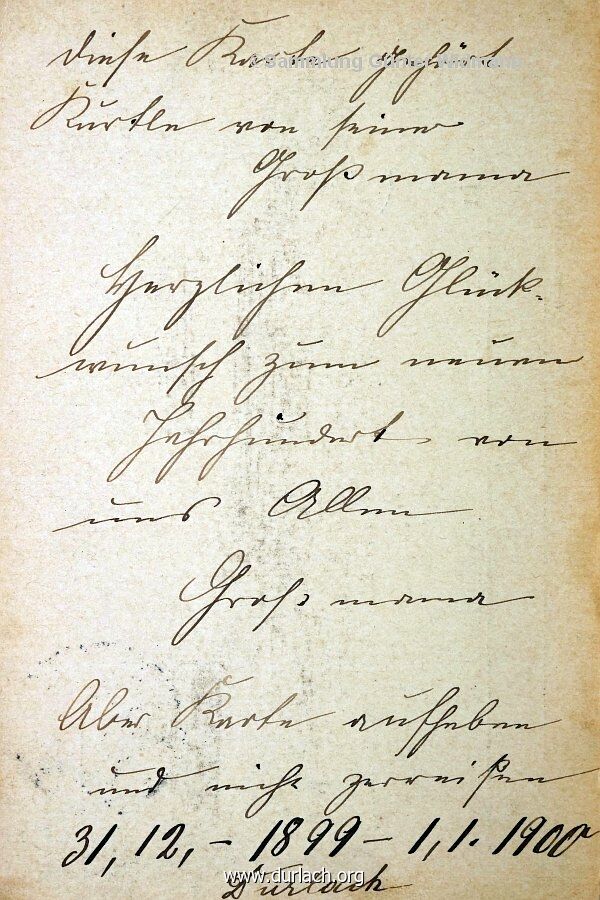 diese Karte gehört
Kurtle von seiner
Großmama
Herzlichen Glück-
wunsch zum neuen
Jahrhundert von
uns Allen
Großmama
Aber Karte aufheben
und nicht zerreißen
31, 12, - 1899 - 1, 1. 1900
Durlach
www.durlach.org